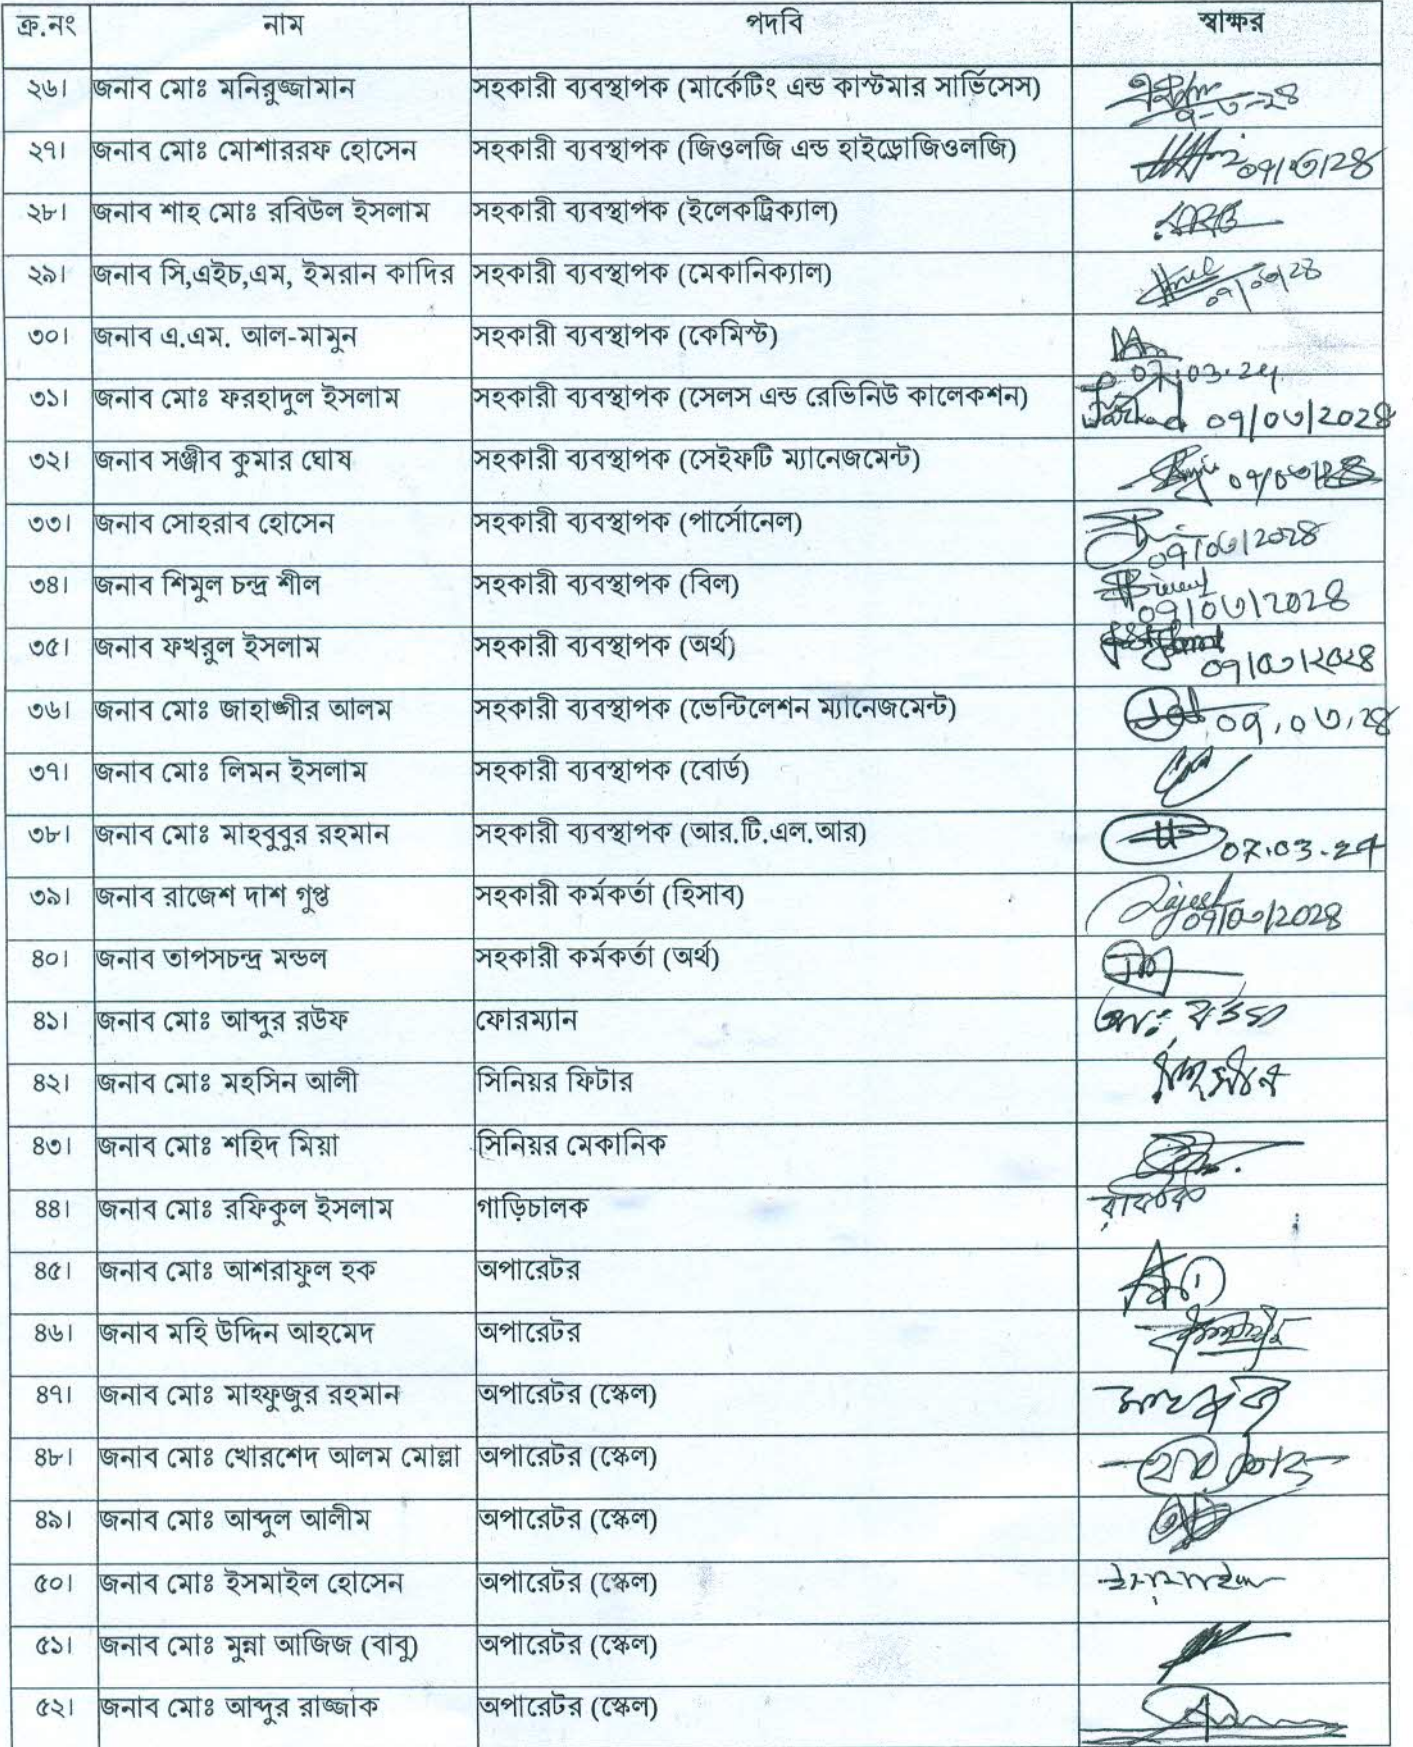 ক্র.নং নাম পদবি স্বাক্ষর
২৬। জনাব মোঃ মনিরুজ্জামান সহকারী ব্যবস্থাপক (মার্কেটিং এন্ড কাস্টমার সার্ভিসেস) ৭-৩-২৪
২৭। জনাব মোঃ মোশাররফ হোসেন সহকারী ব্যবস্থাপক (জিওলজি এন্ড হাইড্রোজিওলজি) ০৭/০৩/২৪
২৮। জনাব শাহ মোঃ রবিউল ইসলাম সহকারী ব্যবস্থাপক (ইলেকট্রিক্যাল)
২৯। জনাব সি,এইচ,এম, ইমরান কাদির সহকারী ব্যবস্থাপক (মেকানিক্যাল) ০৭/০৩/২৪
৩০। জনাব এ.এম. আল-মামুন সহকারী ব্যবস্থাপক (কেমিস্ট) 07.03.24
৩১। জনাব মোঃ ফরহাদুল ইসলাম সহকারী ব্যবস্থাপক (সেলস এন্ড রেভিনিউ কালেকশন) ০৭/০৩/২০২৪
৩২। জনাব সঞ্জীব কুমার ঘোষ সহকারী ব্যবস্থাপক (সেইফটি ম্যানেজমেন্ট) ০৭/০৩/২৪
৩৩। জনাব সোহরাব হোসেন সহকারী ব্যবস্থাপক (পার্সোনেল) ০৭/০৩/২০২৪
৩৪। জনাব শিমুল চন্দ্র শীল সহকারী ব্যবস্থাপক (বিল) ০৭/০৩/২০২৪
৩৫। জনাব ফখরুল ইসলাম সহকারী ব্যবস্থাপক (অর্থ) ০৭/০৩/২০২৪
৩৬। জনাব মোঃ জাহাঙ্গীর আলম সহকারী ব্যবস্থাপক (ভেন্টিলেশন ম্যানেজমেন্ট) ০৭.০৩.২৪
৩৭। জনাব মোঃ লিমন ইসলাম সহকারী ব্যবস্থাপক (বোর্ড)
৩৮। জনাব মোঃ মাহবুবুর রহমান সহকারী ব্যবস্থাপক (আর.টি.এল.আর) 07.03.24
৩৯। জনাব রাজেশ দাশ গুপ্ত সহকারী কর্মকর্তা (হিসাব) Rajesh ০৭/০৩/২০২৪
৪০। জনাব তাপসচন্দ্র মন্ডল সহকারী কর্মকর্তা (অর্থ)
৪১। জনাব মোঃ আব্দুর রউফ ফোরম্যান আঃ রউফ
৪২। জনাব মোঃ মহসিন আলী সিনিয়র ফিটার
৪৩। জনাব মোঃ শহিদ মিয়া সিনিয়র মেকানিক
৪৪। জনাব মোঃ রফিকুল ইসলাম গাড়িচালক
৪৫। জনাব মোঃ আশরাফুল হক অপারেটর
৪৬। জনাব মহি উদ্দিন আহমেদ অপারেটর
৪৭। জনাব মোঃ মাহফুজুর রহমান অপারেটর (স্কেল)
৪৮। জনাব মোঃ খোরশেদ আলম মোল্লা অপারেটর (স্কেল)
৪৯। জনাব মোঃ আব্দুল আলীম অপারেটর (স্কেল)
৫০। জনাব মোঃ ইসমাইল হোসেন অপারেটর (স্কেল) ইসমাইল
৫১। জনাব মোঃ মুন্না আজিজ (বাবু) অপারেটর (স্কেল)
৫২। জনাব মোঃ আব্দুর রাজ্জাক অপারেটর (স্কেল)